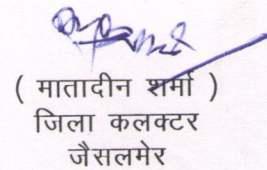 ( मातादीन शर्मा )
जिला कलक्टर
जैसलमेर